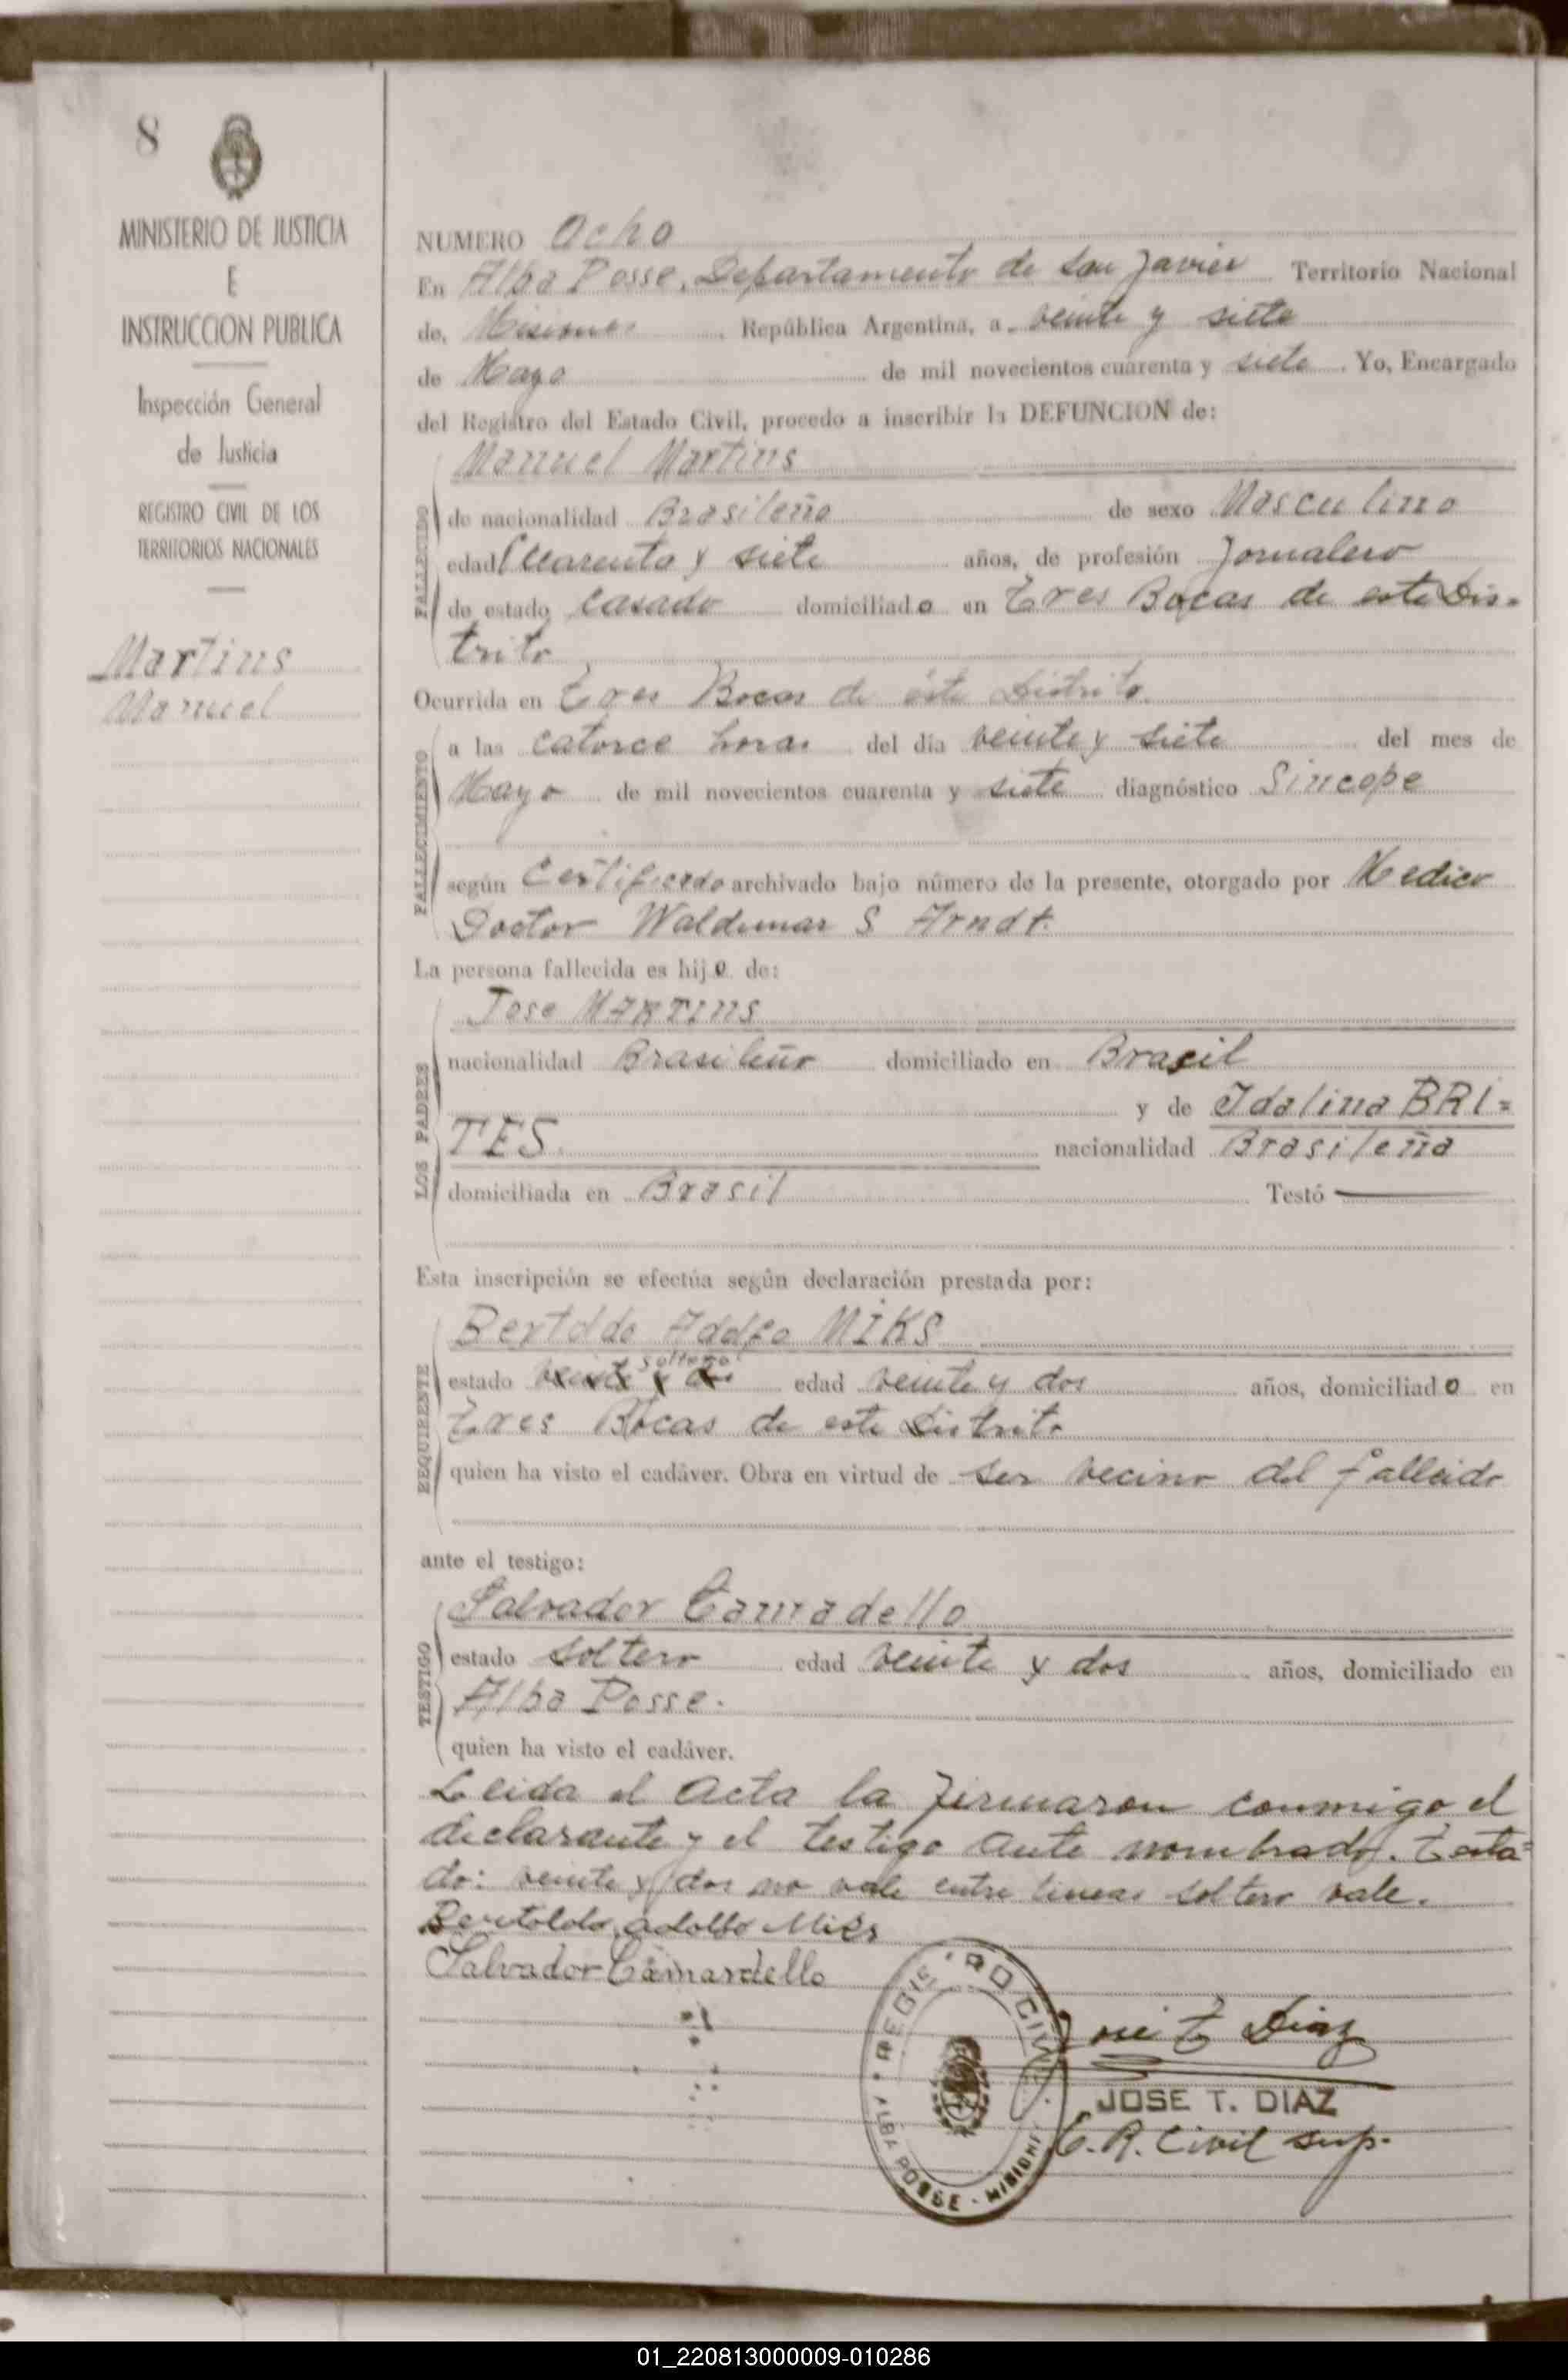 8
MINISTERIO DE JUSTICIA
E
INSTRUCCION PUBLICA
Inspección General
de Justicia
REGISTRO CIVIL DE LOS
TERRITORIOS NACIONALES
Martins
Manuel
NUMERO Ocho
En Alba Posse, Departamento de San Javier Territorio Nacional
de, Misiones República Argentina, a veinte y siete
de Mayo de mil novecientos cuarenta y siete. Yo, Encargado
del Registro del Estado Civil, procedo a inscribir la DEFUNCION de:
Manuel Martins
FALLECIDO
de nacionalidad Brasileña de sexo Masculino
edad Cuarenta y siete años, de profesión Jornalero
de estado casado domiciliado en Tres Bocas de este Dis-
trito
Ocurrida en Tres Bocas de éste Distrito.
FALLECIMIENTO
a las catorce horas del día veinte y siete del mes de
Mayo de mil novecientos cuarenta y siete diagnóstico Sincope
según Certificado archivado bajo número de la presente, otorgado por Medico
Doctor Waldemar S Arndt.
La persona fallecida es hijo de:
LOS PADRES
Jose MARTINS
nacionalidad Brasileño domiciliado en Brasil
y de Idalina BRI=
TES. nacionalidad Brasileña
domiciliada en Brasil Testó
Esta inscripción se efectúa según declaración prestada por:
REQUIRENTE
Bertoldo Adolfo MIKS
soltero
estado veinte y dos edad veinte y dos años, domiciliado en
Tres Bocas de este Distrito
quien ha visto el cadáver. Obra en virtud de ser vecino del fallecido
ante el testigo:
TESTIGO
Salvador Camardello
estado soltero edad veinte y dos años, domiciliado en
Alba Posse.
quien ha visto el cadáver.
Leida el Acta la firmaron conmigo el
declarante y el testigo ante nombrado. Testa=
do: veinte y dos no vale entre lineas soltero vale.
Bertoldo Adolfo Miks
Salvador Camardello
REGISTRO CIVIL
ALBA POSSE - MISIONES
José T. Diaz
JOSE T. DIAZ
E. R. Civil sup.
01_220813000009-010286